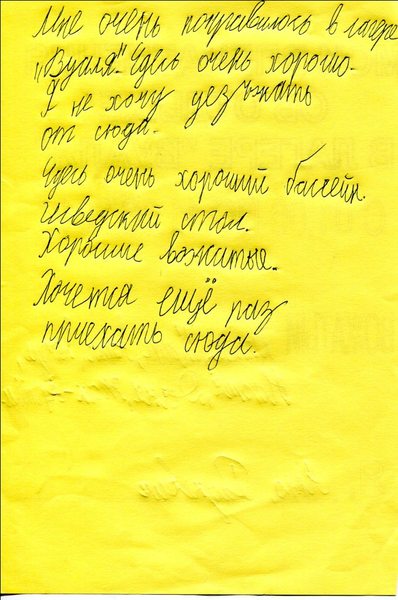 Мне очень понравилось в лагере
"Вуаля". Здесь очень хорошо.
Я не хочу уезъжать
от сюда.
Здесь очень хороший бассейн.
Шведский стол.
Хорошие вожатые.
Хочется ещё раз
приехать сюда.